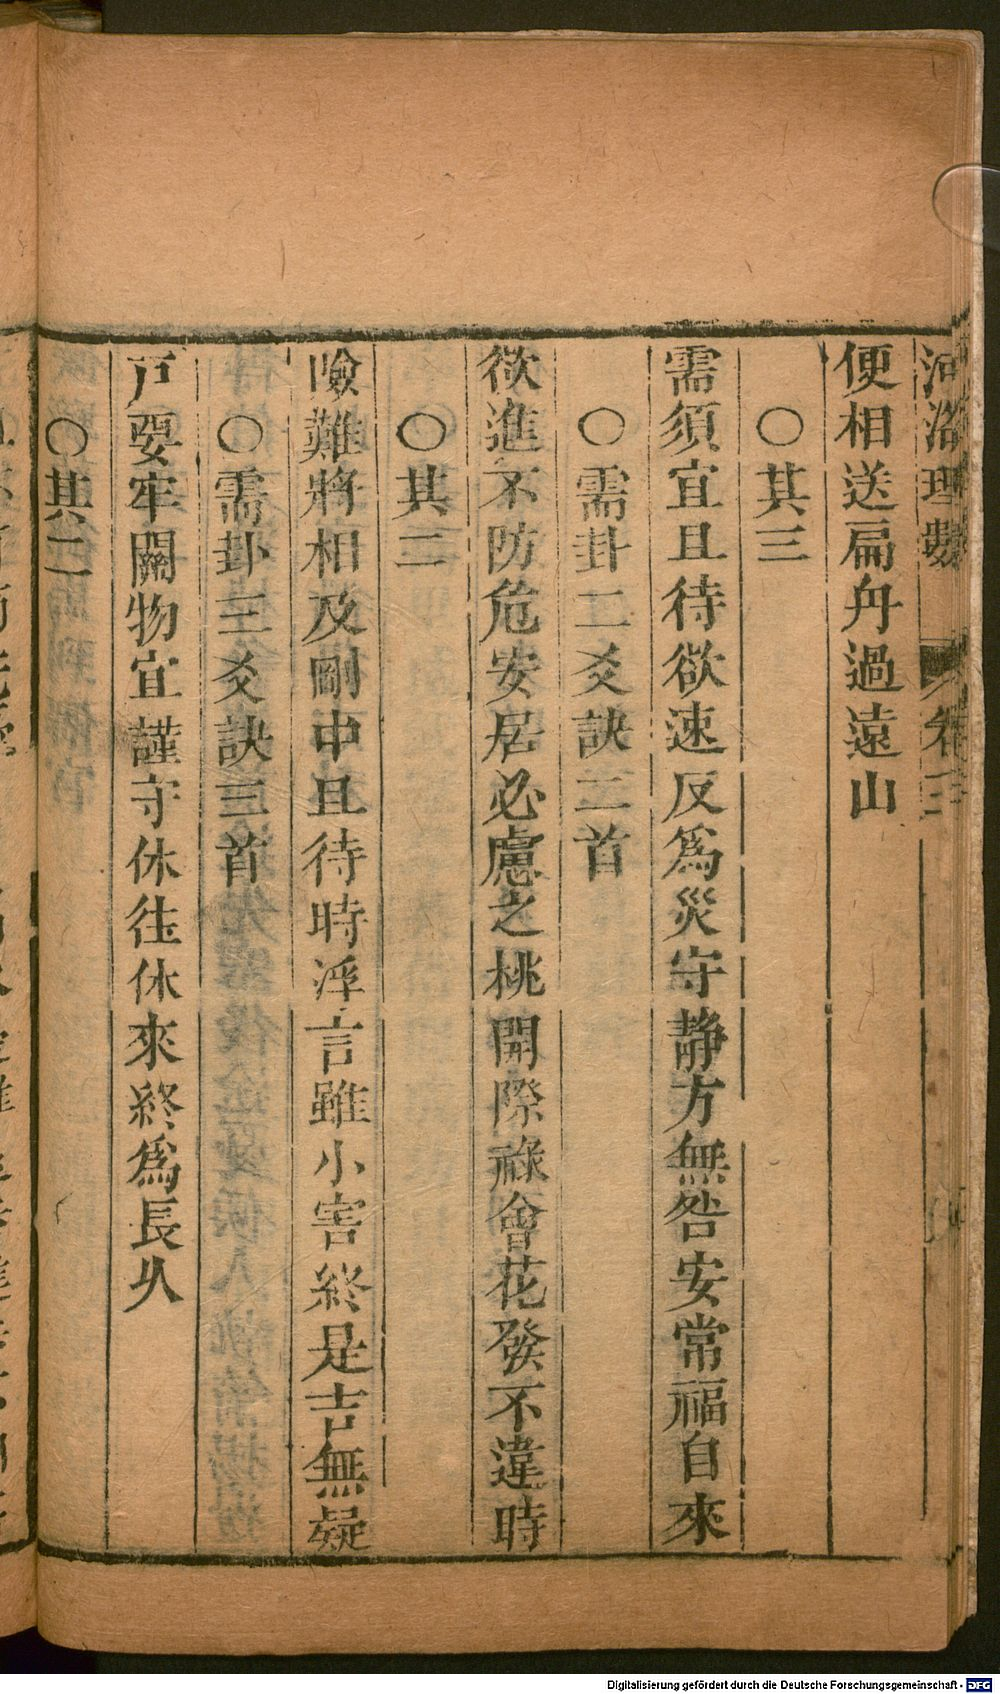 河洛理數 卷三
便相送扁舟過遠山
○其三
需須宜且待欲速反為災守靜方無咎安常福自來
○需卦二爻訣二首
欲進不防危安居必慮之桃開際祿會花發不違時
○其二
險難將相及剛中且待時浮言雖小害終是吉無疑
○需卦三爻訣三首
戸要牢關物宜謹守休徃休來終爲長久
○其二
Digitalisierung gefördert durch die Deutsche Forschungsgemeinschaft - DFG